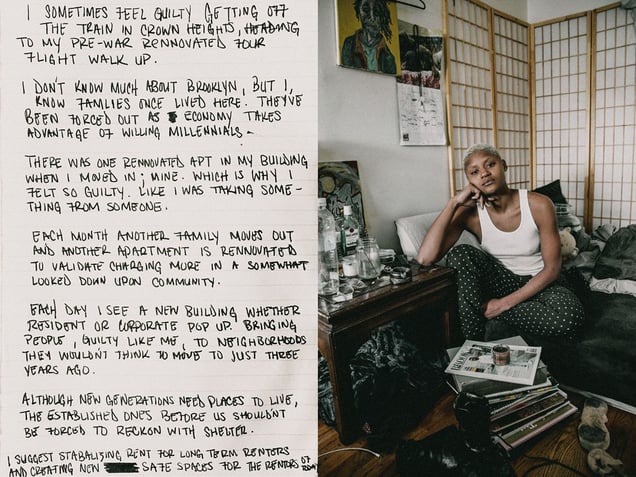 I SOMETIMES FEEL GUILTY GETTING OFF
THE TRAIN IN CROWN HEIGHTS, HEADING
TO MY PRE-WAR RENNOVATED FOUR
FLIGHT WALK UP.
I DON'T KNOW MUCH ABOUT BROOKLYN, BUT I,
KNOW FAMLIES ONCE LIVED HERE. THEY'VE
BEEN FORCED OUT AS ECONOMY TAKES
ADVANTAGE OF WILLING MILLENNIALS.
THERE WAS ONE RENNOVATED APT IN MY BUILDING
WHEN I MOVED IN; MINE. WHICH IS WHY I
FELT SO GUILTY. LIKE I WAS TAKING SOME-
THING FROM SOMEONE.
EACH MONTH ANOTHER FAMILY MOVES OUT
AND ANOTHER APARTMENT IS RENNOVATED
TO VALIDATE CHARGING MORE IN A SOMEWHAT
LOOKED DOWN UPON COMMUNITY.
EACH DAY I SEE A NEW BUILDING WHETHER
RESIDENT OR CORPORATE POP UP. BRINGING
PEOPLE, GUILTY LIKE ME, TO NEIGHBORHOODS
THEY WOULDN'T THINK TO MOVE TO JUST THREE
YEARS AGO.
ALTHOUGH NEW GENERATIONS NEED PLACES TO LIVE,
THE ESTABLISHED ONES BEFORE US SHOULDN'T
BE FORCED TO RECKON WITH SHELTER.
I SUGGEST STABALISING RENT FOR LONG TERM RENTERS
AND CREATING NEW SAFE SPACES FOR THE RENTERS OF
TODAY